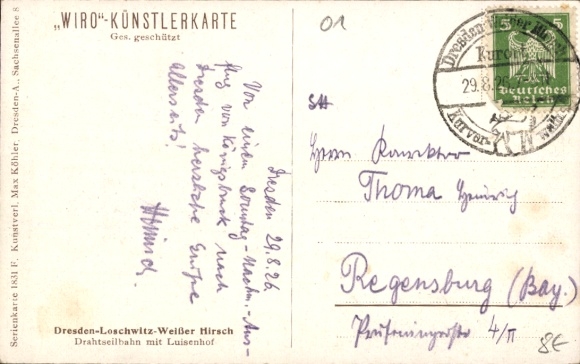 „WIRO“-KÜNSTLERKARTE
Ges. geschützt
Serienkarte 1831 F. Kunstverl. Max Köhler, Dresden-A., Sachsenallee 8
Dresden 29.8.26
Von einem Sonntag-Nachm.-Aus-
flug von Königsbruck nach
Dresden herzliche Grüße
Allerseits!
Dresden-Loschwitz-Weißer Hirsch
Drahtseilbahn mit Luisenhof
01
5 5
Deutsches
Reich
Kurort
29.8.26
Herrn
Thoma Heinrich
Regensburg (Bay.)
Prüfeningerstr 4/II
8€